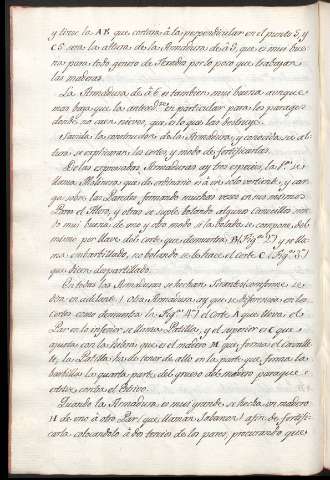 y tirese la AB que cortara à la perpendicular en el punto 5, y
C5 sera la altura de la Armadura de à 5, que es mui bue
na para todo genero de Texados por lo poco que trabajan
las maderas.
La Armadura de à 6 es tambien mui buena aunque
mas baja que la anteced.te en particular para los parages
donde no caen nieves, que es lo que las destruye.
Savida la constructon de la Armadura, y conocida su al
tura se esplicaran los cortes, y modo de fortificarlas.
De las expresadas Armaduras ay tres especies, la 1.a se
llama Molinera que de ordinario es à un solo vertiente, y car
ga sobre las Paredes formando muchas veces en sus mismos
el Alero, y otras se suple bolando algunos canecillos sien
do mui buena de uno y otro modo: si la bolada se compone del
mismo par llave del corte que demuestra B (Fig.a 2.a) y se lla
ma embarbillado, no bolando se le hace el corte C (Fig.a 3.a)
que dicen despatillado.
En todas las Armaduras se hechan conforme se
dira en adelante: otra Armadura ay que se diferencia en los
cortes como demuestra la Fig.a 4.a el corte A que lleva el
Par en la inferior se llama Patilla, y el superior es C que a
justa con la Ilera que es el madero M que forma el cavalle
te, la Patilla ha de tener de alto en la parte que forma la
barbilla la quarta parte del grueso del madero para que
estrive contra el Estrivo.
Quando la Armadura es mui grande se hecha un madero
H de uno à otro Par, que llaman Jabalcon à fin de fortifi
carla colocandolo à dos tercios de los pares, procurando que